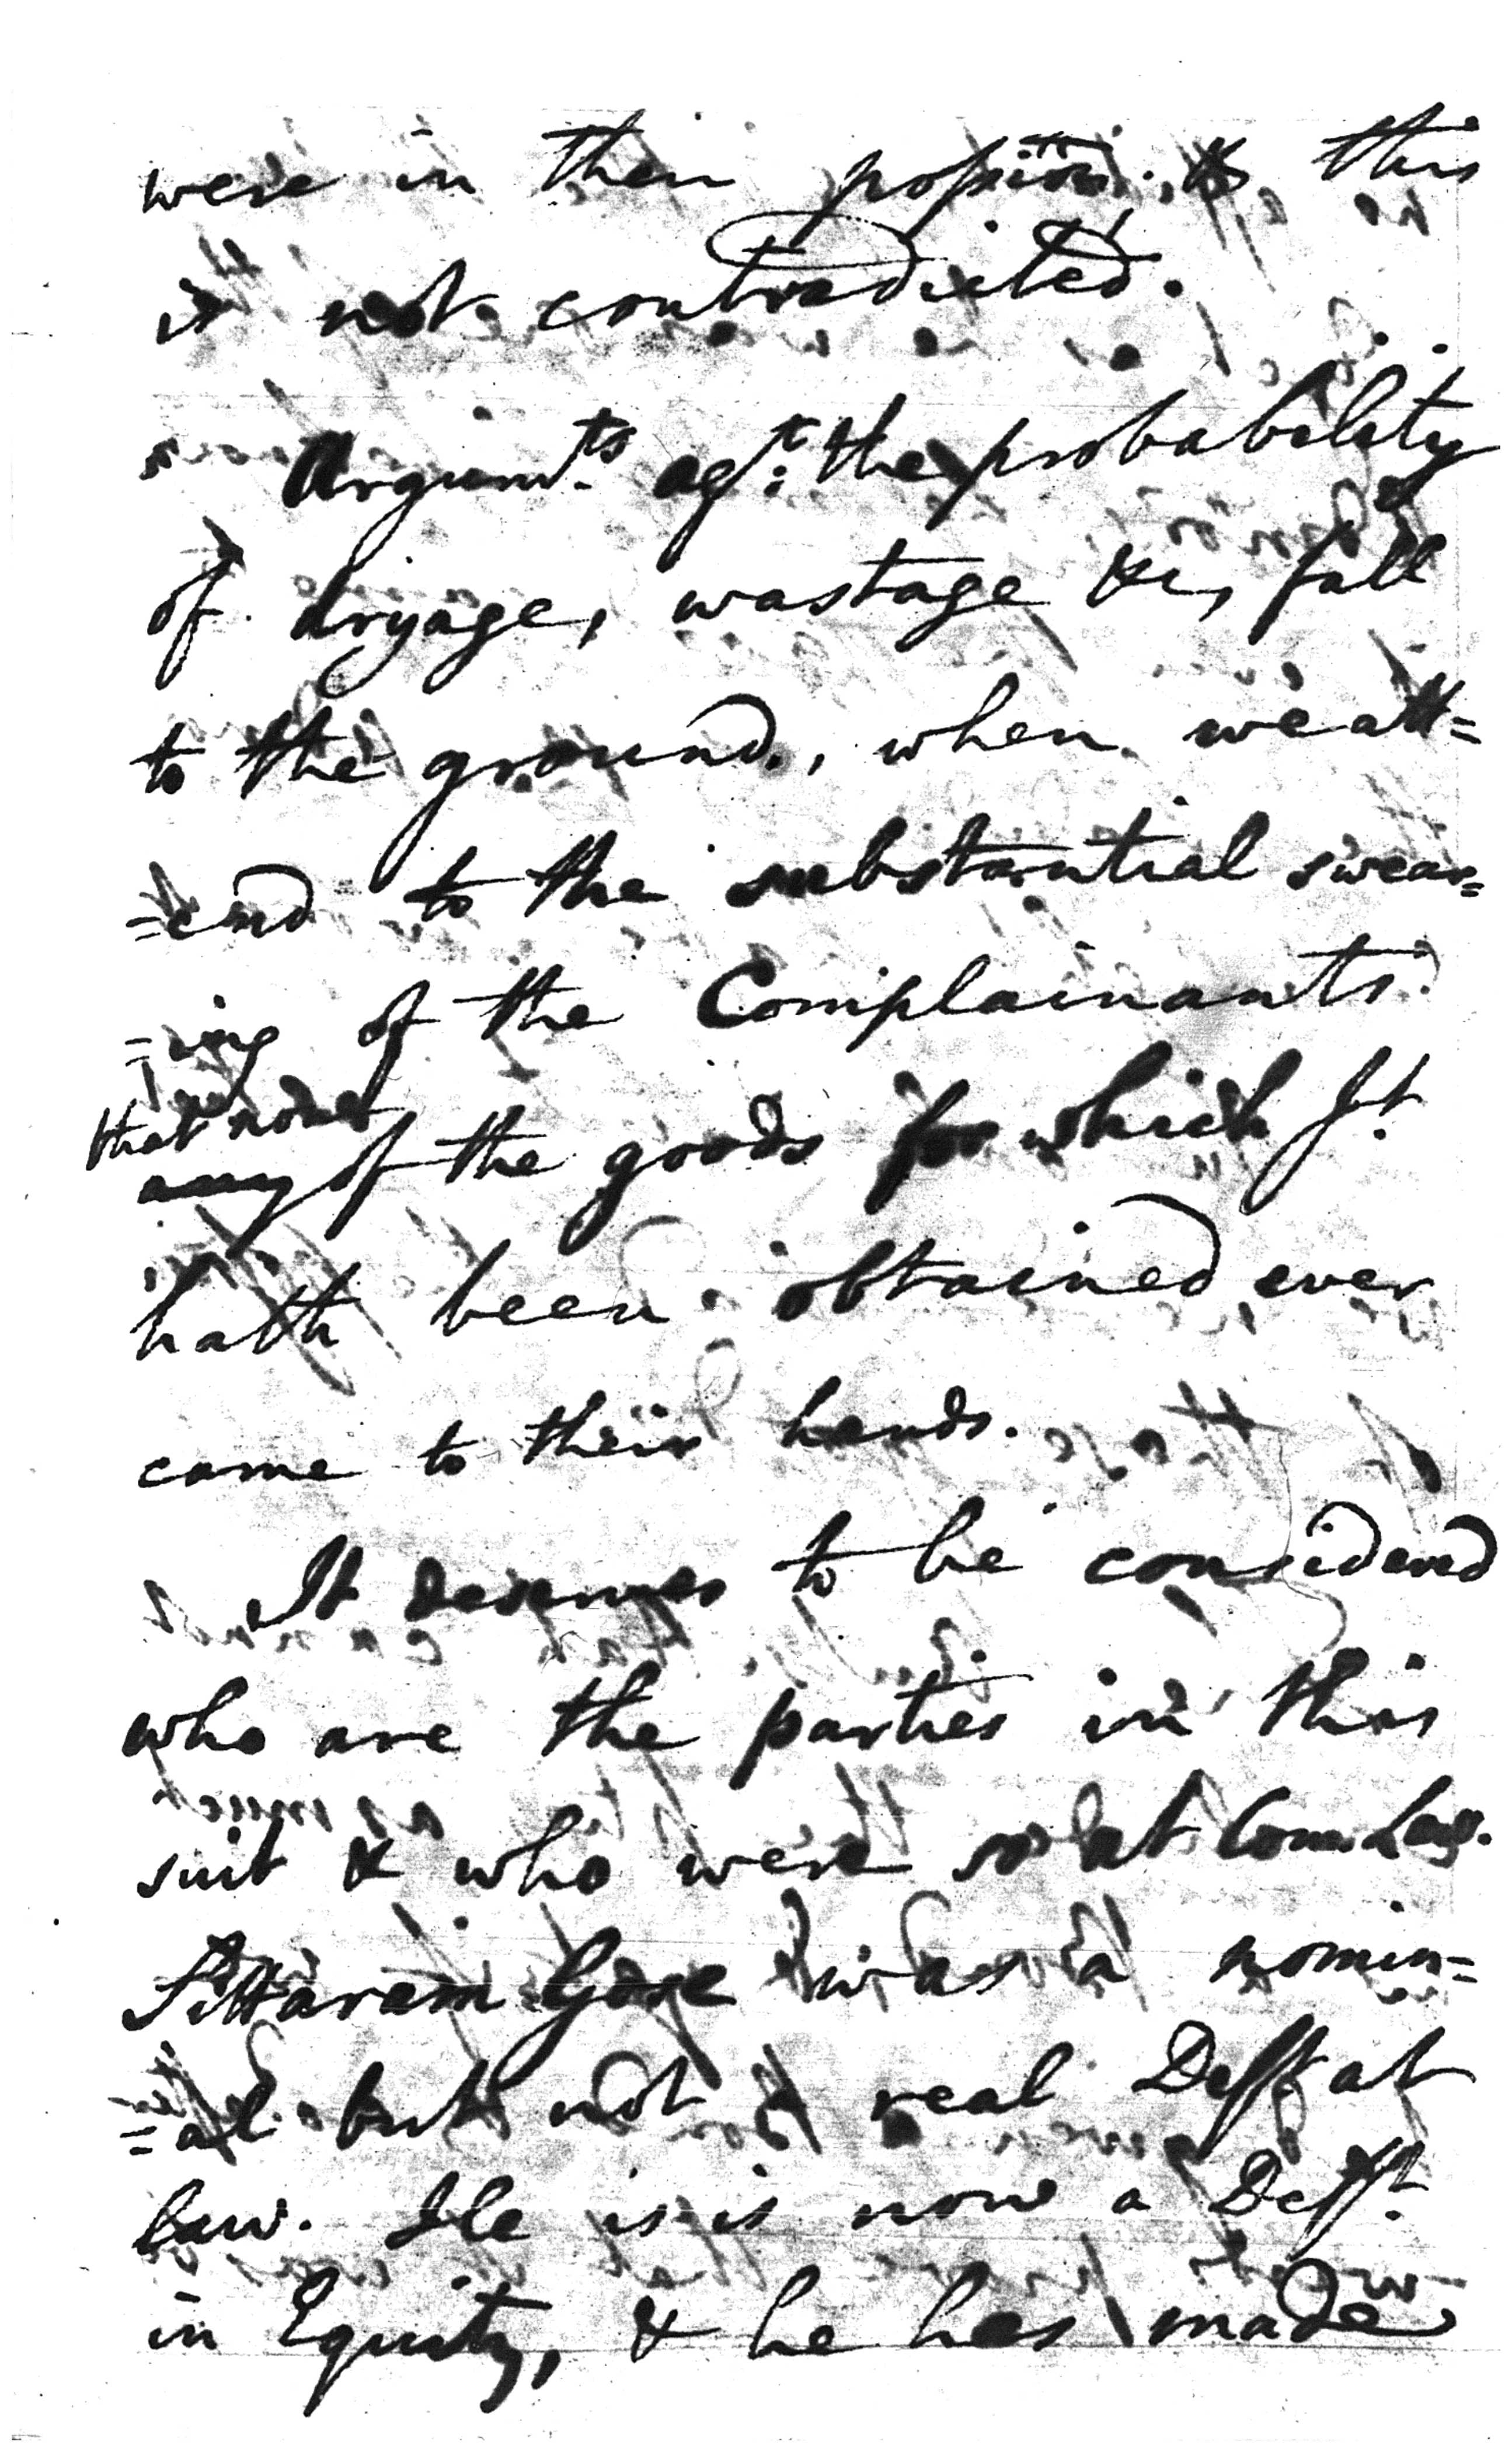 were in their possion. & this
is not contradicted.
Argumts. agt. the probability
of dryage, wastage &c, fall
to the ground, when we att=
=end to the substantial swear=
=ing of the Complainants
that none
any of the goods for which Jt.
hath been obtained ever
came to their hands.
It deserves to be considered
who are the parties in this
suit & who were so at Com. Law.
Sittaram Gose was a nomin=
=al but not a real Defft at
law. He is is now a Defft.
in Equity, & he has made